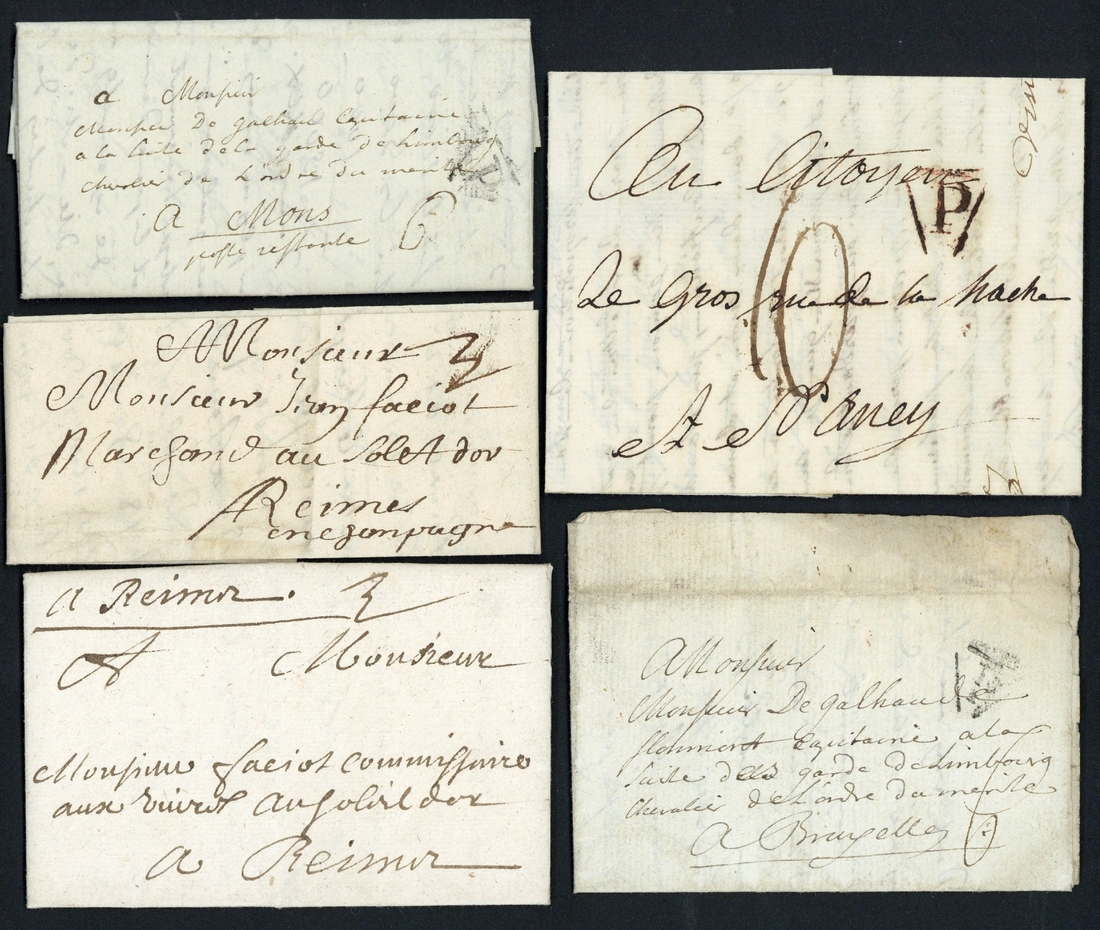 a Monsieur
Monsieur De galhau Capitaine
a la suite de la garde de Limbourg
chevalier de L'ordre du merite
A Mons
poste restante
6
Au Citoyen
P
10
Le Gros rue de la hache
At Nancy
Monsieur 3
Monsieur faciot
Marchand au solet dor
A Reimes
en chonpagne
a Reims. 3
A Monsieur
Monsieur faciot commissaire
aux vivres au soliel dor
a Reims
A Monsieur
Monsieur De galhau
Capitaine a la
suite de la garde de Limbourg
chevalier de L'ordre du merite
a Bruxelles